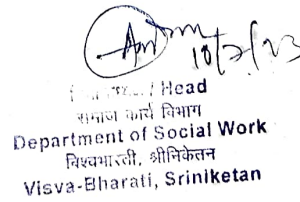 10/2/23
/ Head
समाज कार्य विभाग
Department of Social Work
विश्वभारती, श्रीनिकेतन
Visva-Bharati, Sriniketan